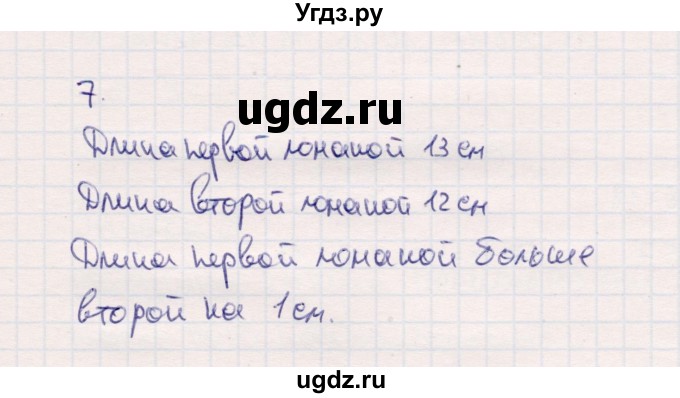 Угдз.ру
7.
ugdz.ru
Длина первой ломаной 13 см
Длина второй ломаной 12 см
Длина первой ломаной больше
второй на 1 см.
ugdz.ru